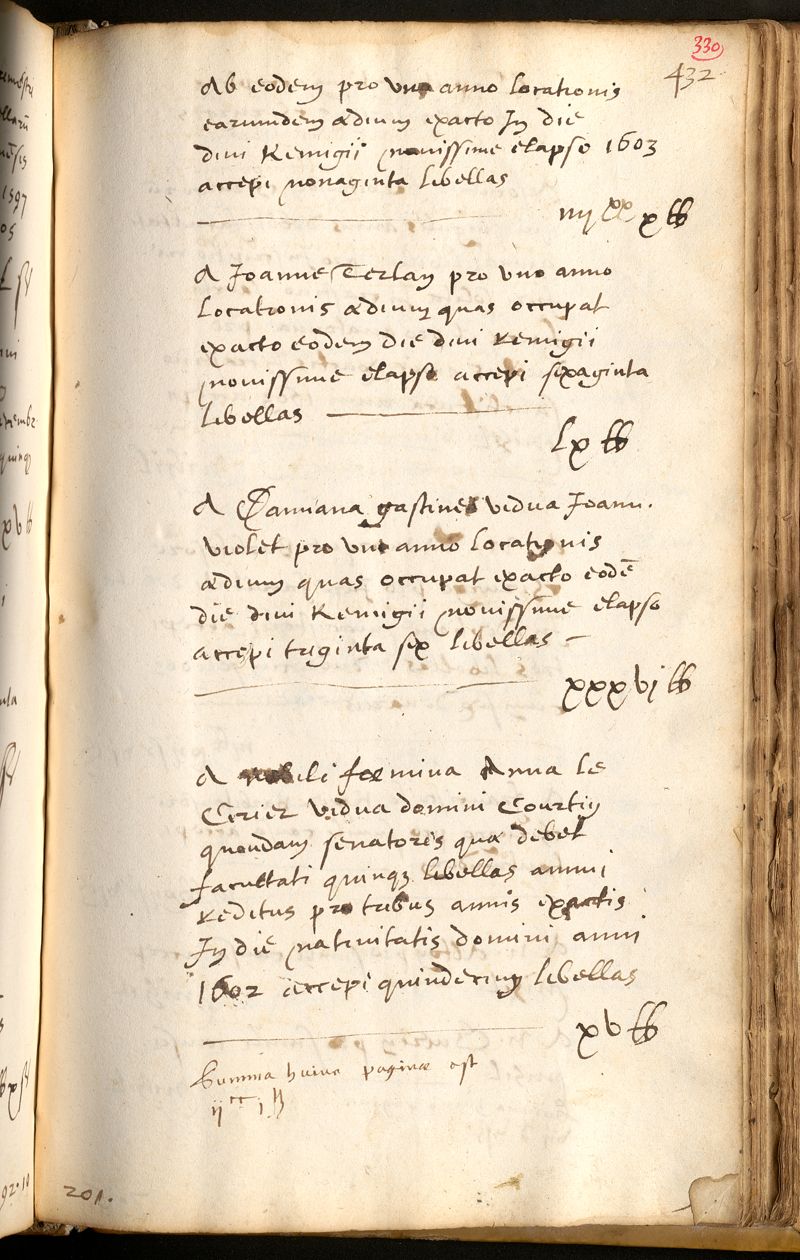 330
432
Ab eodem pro uno anno locationis
earumdem ædium exacto In die
divi Remigii novissime elapso 1603
accepi nonaginta libellas
iiij xx x lb
A Joanne Terlan pro uno anno
locationis ædium quas occupat
exacto eodem die divi Remigii
novissime elapso accepi sexaginta
libellas
lx lb
A Damiana gastines vidua Joann.
violet pro uno anno locationis
ædium quas occupat exacto eodē
die divi Remigii novissime elapso
accepi triginta sex libellas
xxxvj lb
A nobili fœmina Anna le
Cerier vidua domini Courtin
quondam senatoris quæ debet
facultati quinqȝ libellas annui
reditus pro tribus annis exactis
In die nativitatis domini anni
1602 accepi quindecim libellas
xv lb
Summa huius paginæ est
ij cc j lb
201.